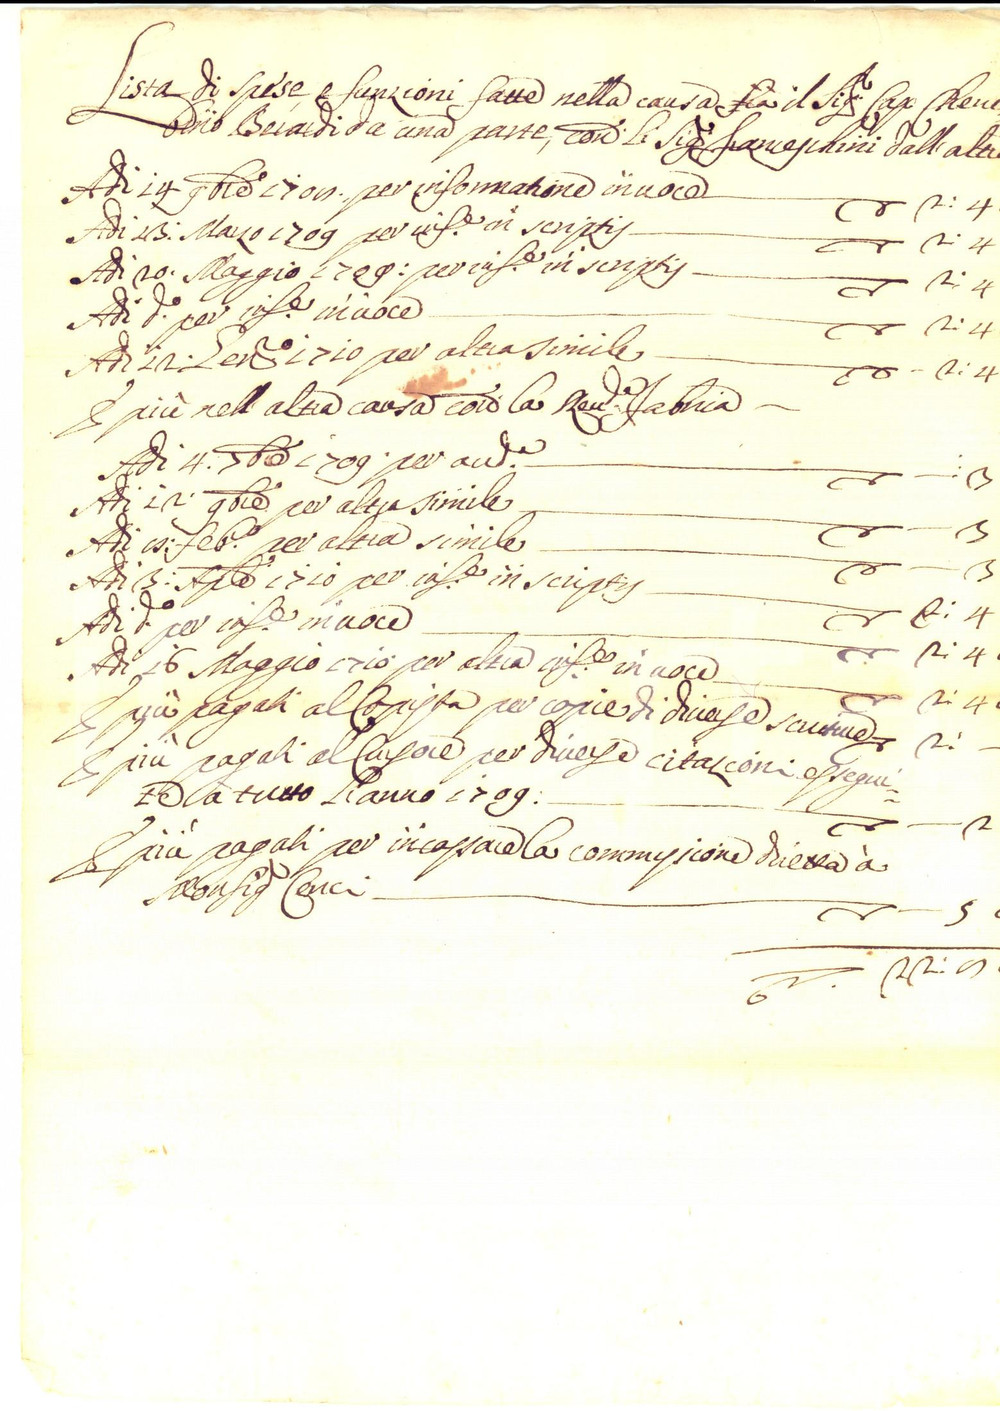 Lista di spese, e funzioni fatte nella causa fra il Sig.r Cap. Cheru
bino Berardi da una parte, con li Sig.ri Franceschini dall'altra
Adi 14 9bre 1708. per informatione in voce 2: 4
Adi 13: Marzo 1709 per inf.e in scriptis 2: 4
Adi 20. Maggio 1709: per inf.e in scriptis 2: 4
Adi d.o per inf.e in voce 2: 4
Adi 12: Gen.o 1710 per altra simile 2: 4
E più nell altra causa con la Reu.da Fabrica
Adi 4: 7bre 1709: per aud.a : 3
Adi 12: 9bre per altra simile 3
Adi feb.o per altra simile 3
Adi 3: Aple 1710 per inf.e in scriptis 2: 4
Adi d.o per inf.e in voce 2: 4
Adi 16 Maggio 1710 per altra inf.e in voce 2: 4
E più pagati al Copista per copie di diverse scritture 2: —
E più pagati al Cursore per diverse citazioni essegui=
te a tutto l'anno 1709: 2
E più pagati per incassare la commissione diretta à
Monsig.r Cenci 5
22: